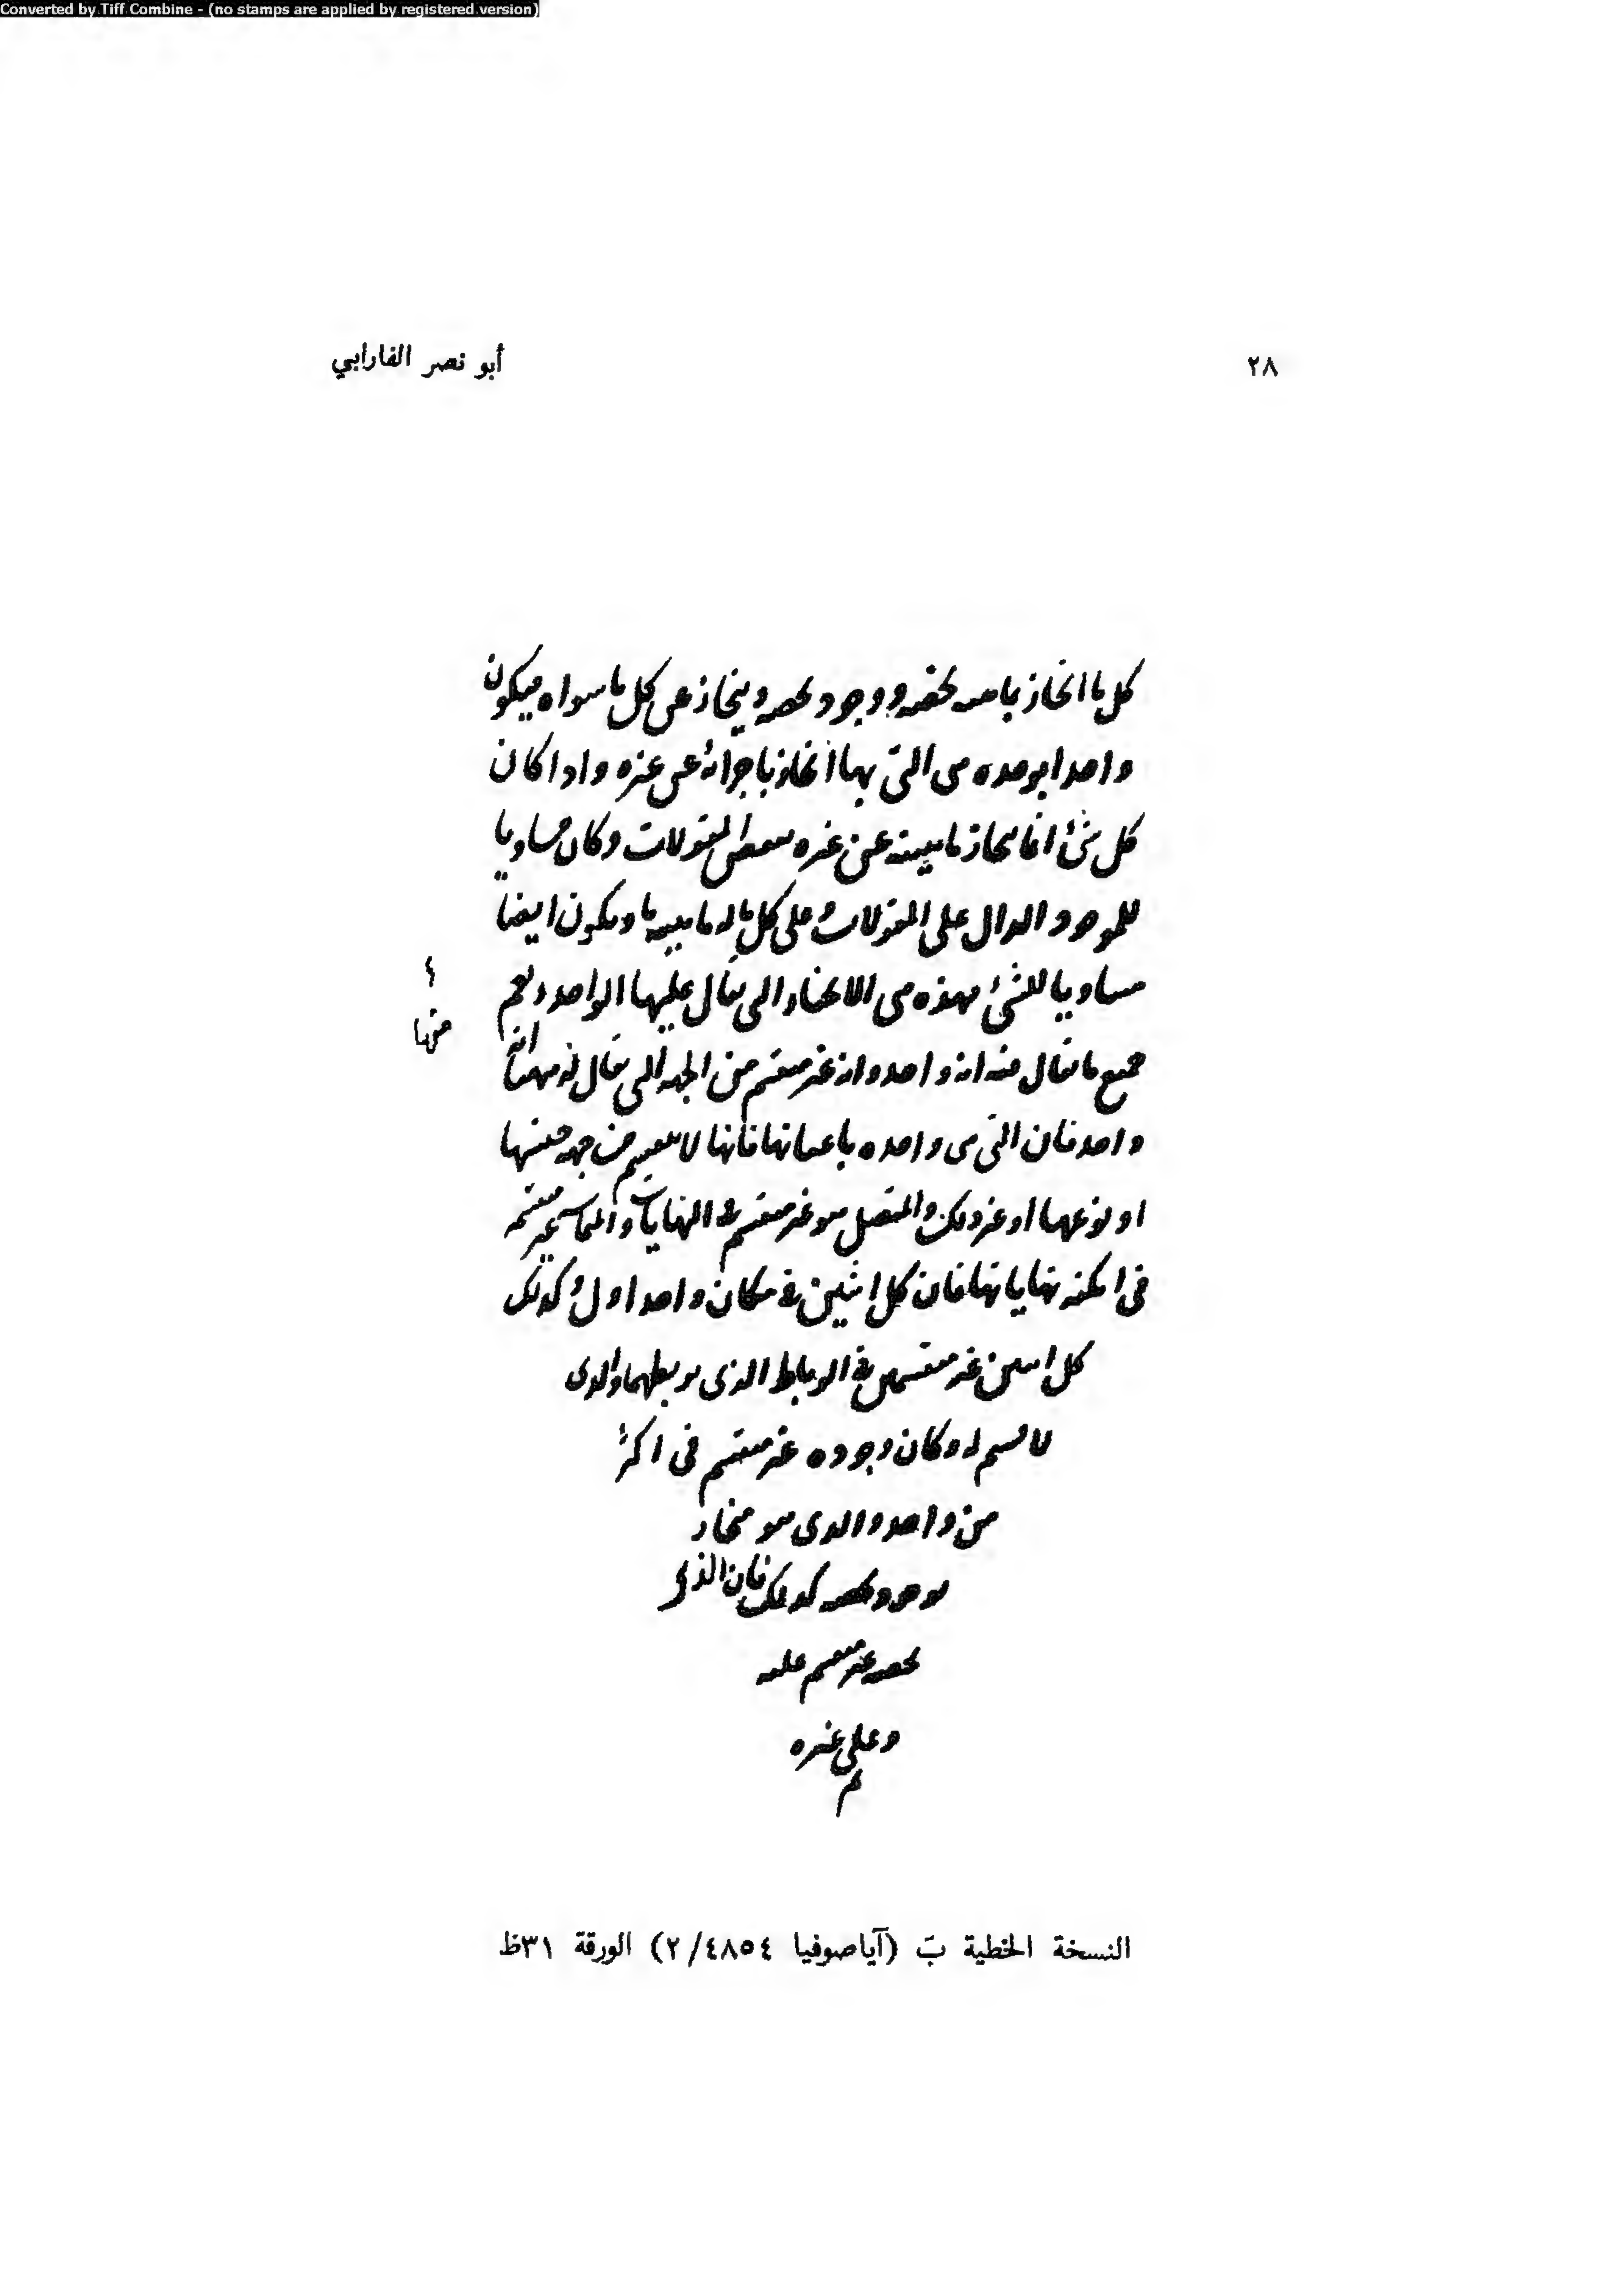 Converted by Tiff Combine - (no stamps are applied by registered version)
٢٨
أبو نصر الفارابي
كل ما انحاز بماهيه تخصه ووجود تخصه وينحاز عن كل ما سواه فيكون
واحدا بوحده هي التي بها انحاز باجزائه عن غيره واذا كان
كل شئ انما ينحاز بماهيته عن غيره ببعض المقولات وكان مساويا
للموجود الدال على المقولات وعلى كل ما له ماهيه ما ويكون ايضا
مساويا للشئ فهذه هي الانحاء التي يقال عليها الواحد ويعم
جميع ما يقال فيه انه واحد وانه غير منقسم من الجهه التي يقال فيه منها انه
منها
واحد فان التي هي واحده باعيانها فانها لا تنقسم من جهه جنسها
او نوعها او غير ذلك والمتصل هو غير منقسم في النهايات والمتماسه غير منقسمه
في امكنه نهاياتها فان كل اثنين في مكان واحد اول وكذلك
كل اثنين غير منقسمين في الرباط الذي يربطهما والذي
لا قسيم له وكان وجوده غير منقسم في اكثر
من واحد والذي هو منحاز
بوجود تخصه كذلك فان الذي
تخصه غير منقسم عليه
وعلى غيره
النسخة الخطية بَ (آياصوفيا ٤٨٥٤/٢) الورقة ٣١ظ